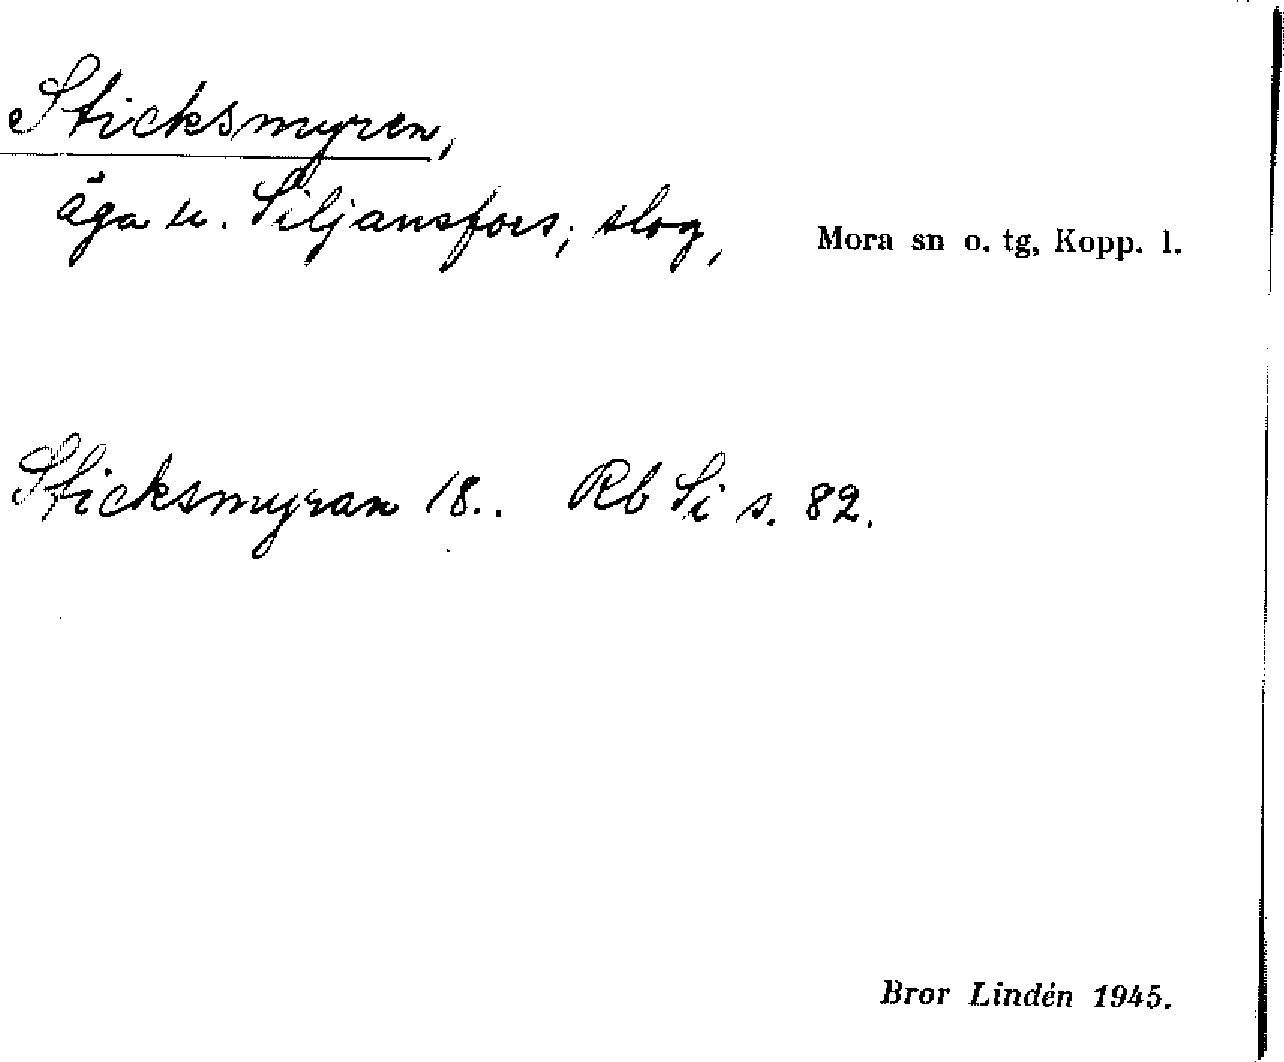 Sticksmyren,
äga u. Siljansfors; slog, Mora sn o. tg, Kopp. l.
Sticksmyran 18.. Rb Si s. 82.
Bror Lindén 1945.